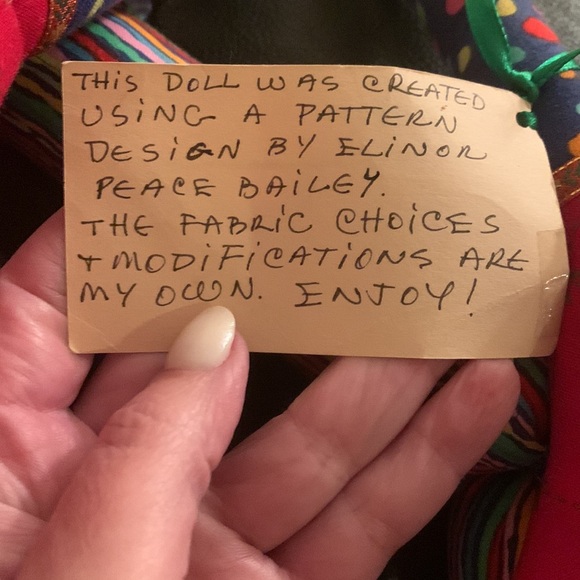 THIS DOLL WAS CREATED
USING A PATTERN
DESIGN BY ELINOR
PEACE BAILEY.
THE FABRIC CHOICES
+ MODIFICATIONS ARE
MY OWN. ENJOY!